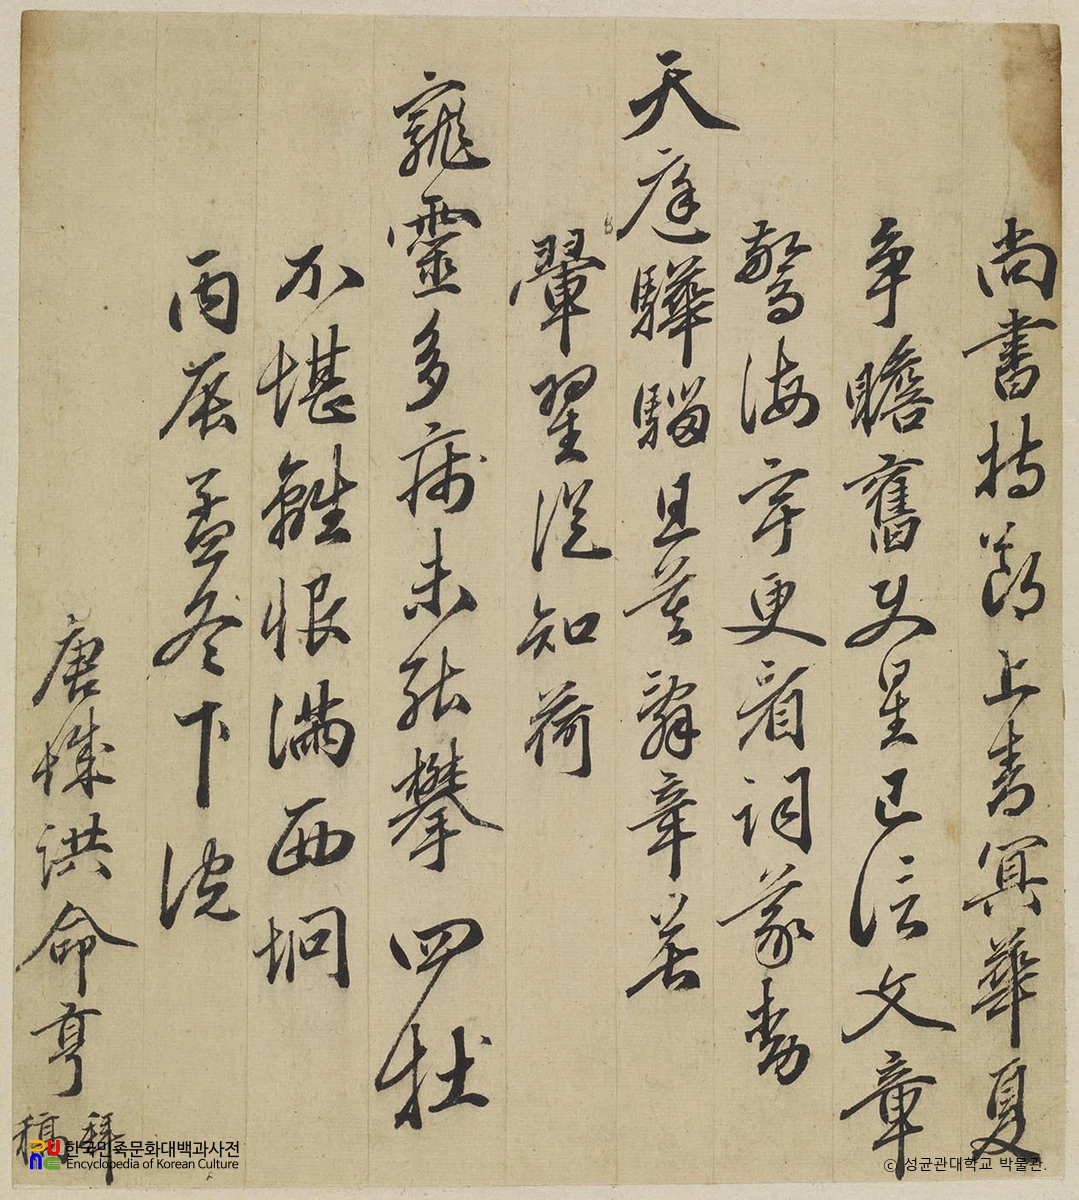 尚書持節上青冥華夏
爭瞻舊史星已信文章
驚海宇更看詞動
天庭驊騮且莫辭辛苦
翬翟從知荷
寵靈多病未能攀四牡
不堪離恨滿西坰
丙辰孟冬下浣
唐城洪命亨
拜稿
한국민족문화대백과사전
Encyclopedia of Korean Culture
ⓒ 성균관대학교 박물관.